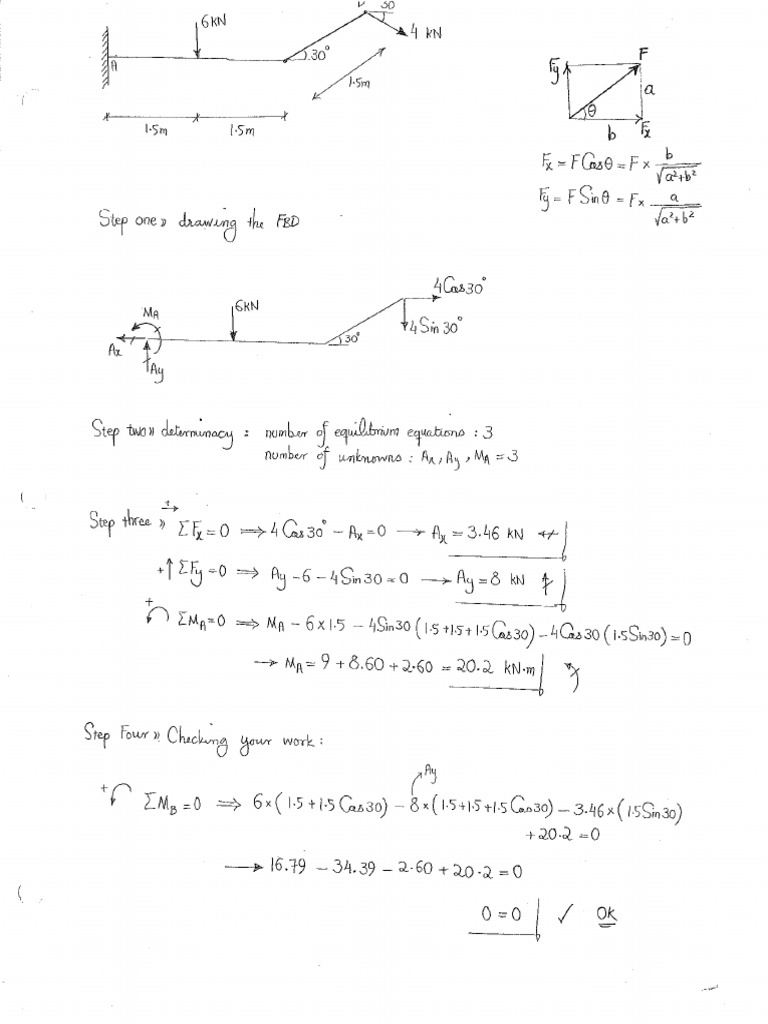 6KN
30
4 KN
A
30°
1.5m
1.5m
1.5m
F
Fy
a
θ
b
Fx
Fx = F Cosθ = F × b/√(a²+b²)
Fy = F Sinθ = F× a/√(a²+b²)
Step one » drawing the FBD
4Cos30°
MA
6KN
4 Sin 30°
Ax
30°
Ay
Step two » determinacy : number of equilibrium equations : 3
number of unknowns : Ax, Ay, MA = 3
Step three » + → ΣFx = 0 ⟹ 4 Cos30° - Ax = 0 → Ax = 3.46 KN
+↑ ΣFy = 0 ⟹ Ay - 6 - 4Sin30 = 0 → Ay = 8 KN
+ ΣMA = 0 ⟹ MA - 6×1.5 - 4Sin30 (1.5+1.5+1.5Cos30) - 4Cos30 (1.5Sin30) = 0
→ MA = 9 + 8.60 + 2.60 = 20.2 KN.m
Step Four » Checking your work :
Ay
+ ΣMB = 0 ⟹ 6×(1.5+1.5Cos30) - 8×(1.5+1.5+1.5Cos30) - 3.46×(1.5Sin30)
+20.2 = 0
→ 16.79 - 34.39 - 2.60 + 20.2 = 0
0 = 0 ✓ OK